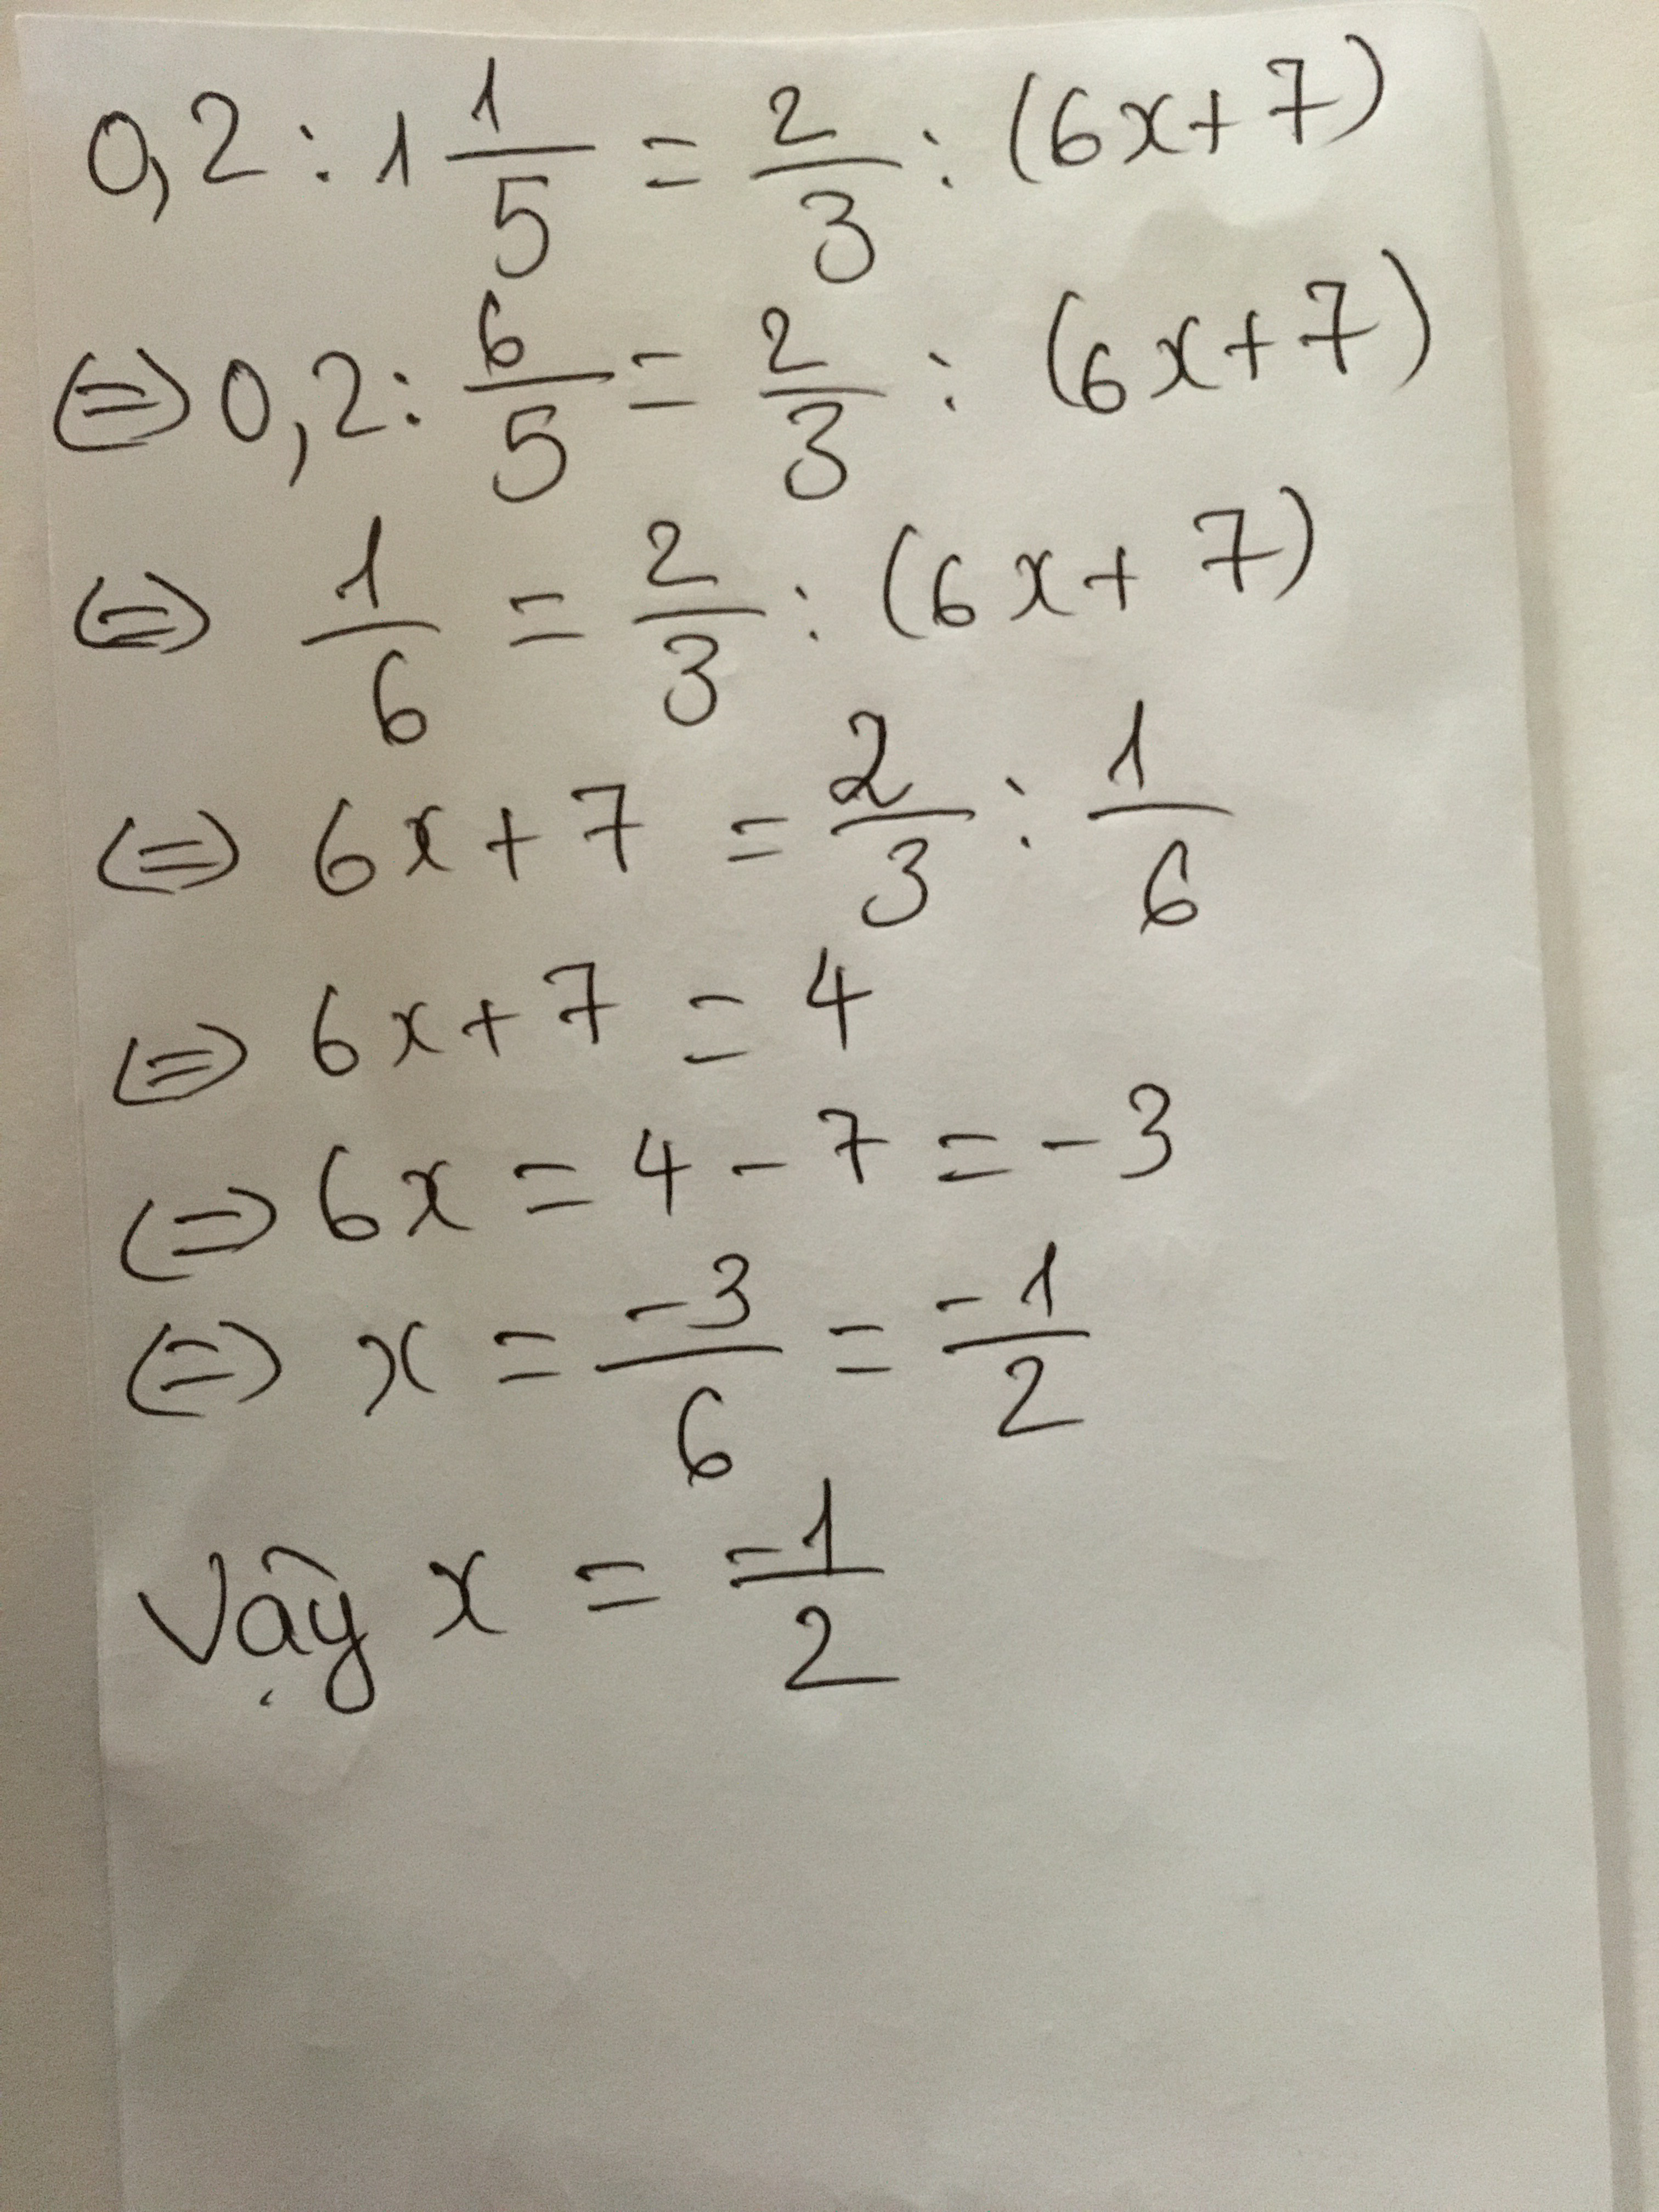 0,2 : 1 1/5 = 2/3 : (6x + 7)
⇔ 0,2 : 6/5 = 2/3 : (6x + 7)
⇔ 1/6 = 2/3 : (6x + 7)
⇔ 6x + 7 = 2/3 : 1/6
⇔ 6x + 7 = 4
⇔ 6x = 4 - 7 = -3
⇔ x = -3/6 = -1/2
Vậy x = -1/2